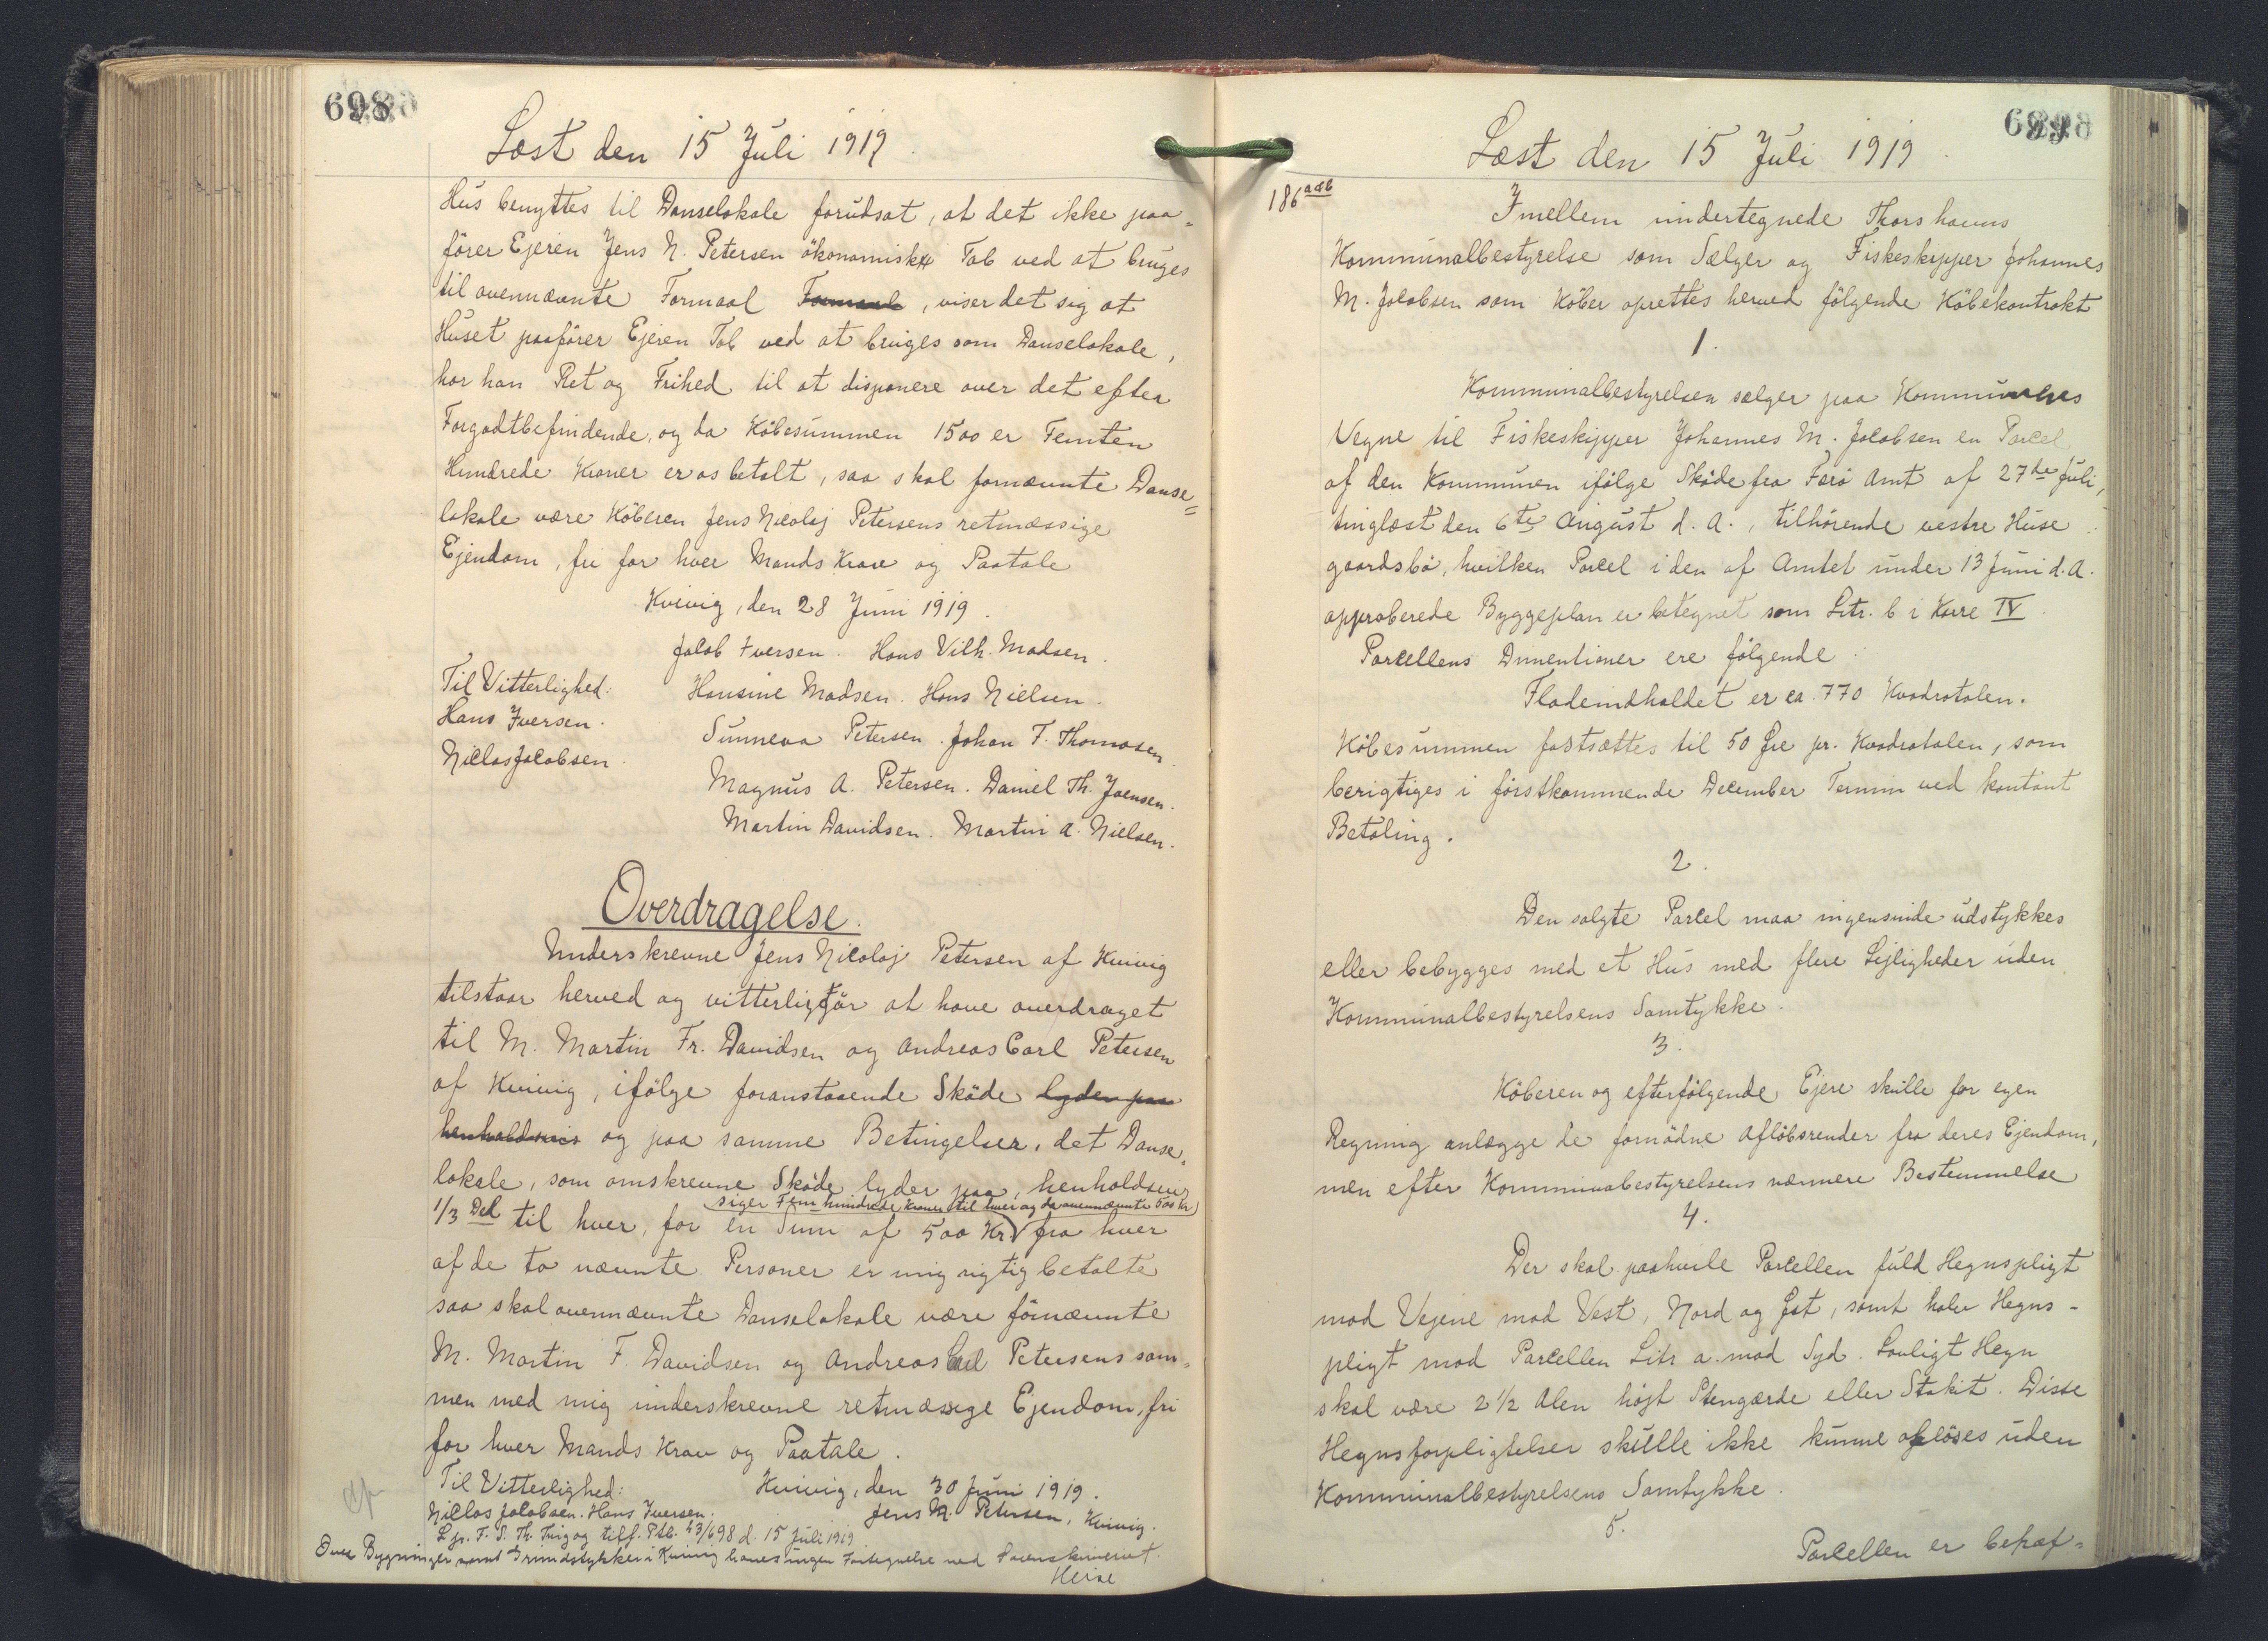 698
Læst den 15 Juli 1919.
Hus benyttes til Danselokale forudsat, at det ikke paa-
fører Ejeren Jens N. Petersen økonomisk Tab ved at bruges
til ovennævnte Formaal Formaal, viser det sig at
Huset paafører Ejeren Tab ved at bruges som Danselokale,
har han Ret og Frihed til at disponere over det efter
Forgodtbefindende, og da Købesummen 1500 er Femten
Hundrede Kroner er os betalt, saa skal fornævnte Danse=
lokale være Køberen Jens Nicolaj Petersens retmæssige
Ejendom, fri for hver Mands Krav og Paatale
Kvivig, den 28 Juni 1919.
Jacob Iversen. Hans Vilh. Madsen.
Til Vitterlighed: Hansine Madsen. Hans Nielsen.
Hans Iversen. Sunneva Petersen. Johan F. Thomasen.
Niclas Jacobsen. Magnus A. Petersen. Daniel Th. Joensen.
Martin Davidsen. Martin A. Nielsen.
Overdragelse.
Underskrevne Jens Nicolaj Petersen af Kvivig
tilstaar herved og vitterligtgør at have overdraget
til M. Martin Fr. Davidsen og Andreas Carl Petersen
af Kvivig, ifølge foranstaaende Skøde lyder paa
henholdsvis og paa samme Betingelser, det Danse-
lokale, som omskrevne Skøde lyder paa, henholdsvis
siger Fem hundrede Kroner til hver og da ovennævnte 500 Kr
1/3 Del til hver, for en Sum af 500 Kr. fra hver
af de to nævnte Personer er mig rigtig betalte
saa skal ovennævnte Danselokale være fornævnte
M. Martin F. Davidsen og Andreas Carl Petersens sam-
men med mig underskrevne retmæssige Ejendom, fri
for hver Mands Krav og Paatale.
Til Vitterlighed: Kvivig, den 30 Juni 1919.
Niclas Jacobsen. Hans Iversen. Jens N. Petersen, Kvivig.
L gr. F. S. Th. Ting og tilf. Ptb. 43/698 d. 15 Juli 1919
Over Bygninger samt Grundstykker i Kvivig haves ingen Fortegnelse ved Sorenskriveriet.
Heise
699
Læst den 15 Juli 1919.
186 a&b
Imellem undertegnede Thorshavns
Kommunalbestyrelse som Sælger og Fiskeskipper Johannes
M. Jacobsen som Køber oprettes herved følgende Købekontrakt
1.
Kommunalbestyrelsen sælger paa Kommunens
Vegne til Fiskeskipper Johannes M. Jacobsen en Parcel
af den Kommunen ifølge Skøde fra Færø Amt af 27de Juli,
tinglæst den 6te August d. A., tilhørende vestre Huse
gaardsbø, hvilken Parcel i den af Amtet under 13 Juni d. A.
approberede Byggeplan er betegnet som Litr. b i Karre IV.
Parcellens Dimentioner ere følgende
Fladeindholdet er ca. 770 Kvadratalen.
Købesummen fastsættes til 50 Øre pr. Kvadratalen, som
berigtiges i førstkommende December Termin ved kontant
Betaling.
2.
Den solgte Parcel maa ingensinde udstykkes
eller bebygges med et Hus med flere Lejligheder uden
Kommunalbestyrelsens Samtykke.
3.
Køberen og efterfølgende Ejere skulle for egen
Regning anlægge de fornødne Afløbsrender fra deres Ejendom,
men efter Kommunabestyrelsens nærmere Bestemmelse
4.
Der skal paahvile Parcellen fuld Hegnspligt
mod Vejene mod Vest, Nord og Øst, samt halv Hegns-
pligt mod Parcellen Litr a. mod Syd. Lovligt Hegn
skal være 2 1/2 Alen højt Stengærde eller Stakit. Disse
Hegnsforpligtelser skulle ikke kunne afløses uden
Kommunalbestyrelsens Samtykke.
5.
Parcellen er behæf=